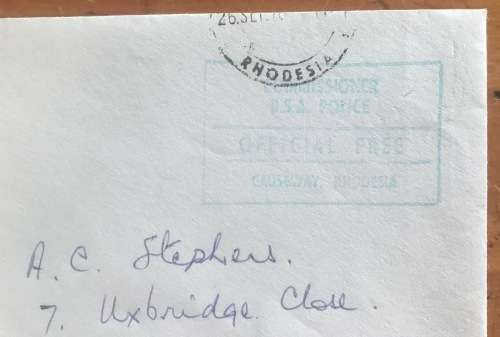 RHODESIA
COMMISSIONER
B.S.A. POLICE
OFFICIAL FREE
CAUSEWAY, RHODESIA
A. C. Stephens.
7. Uxbridge Close.